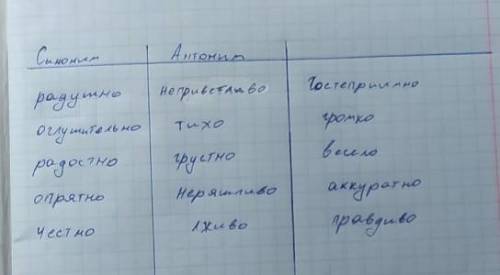 Синоним Антоним
радушно неприветливо Гостеприимно
оглушительно тихо громко
радостно грустно весело
опрятно неряшливо аккуратно
честно лживо правдиво